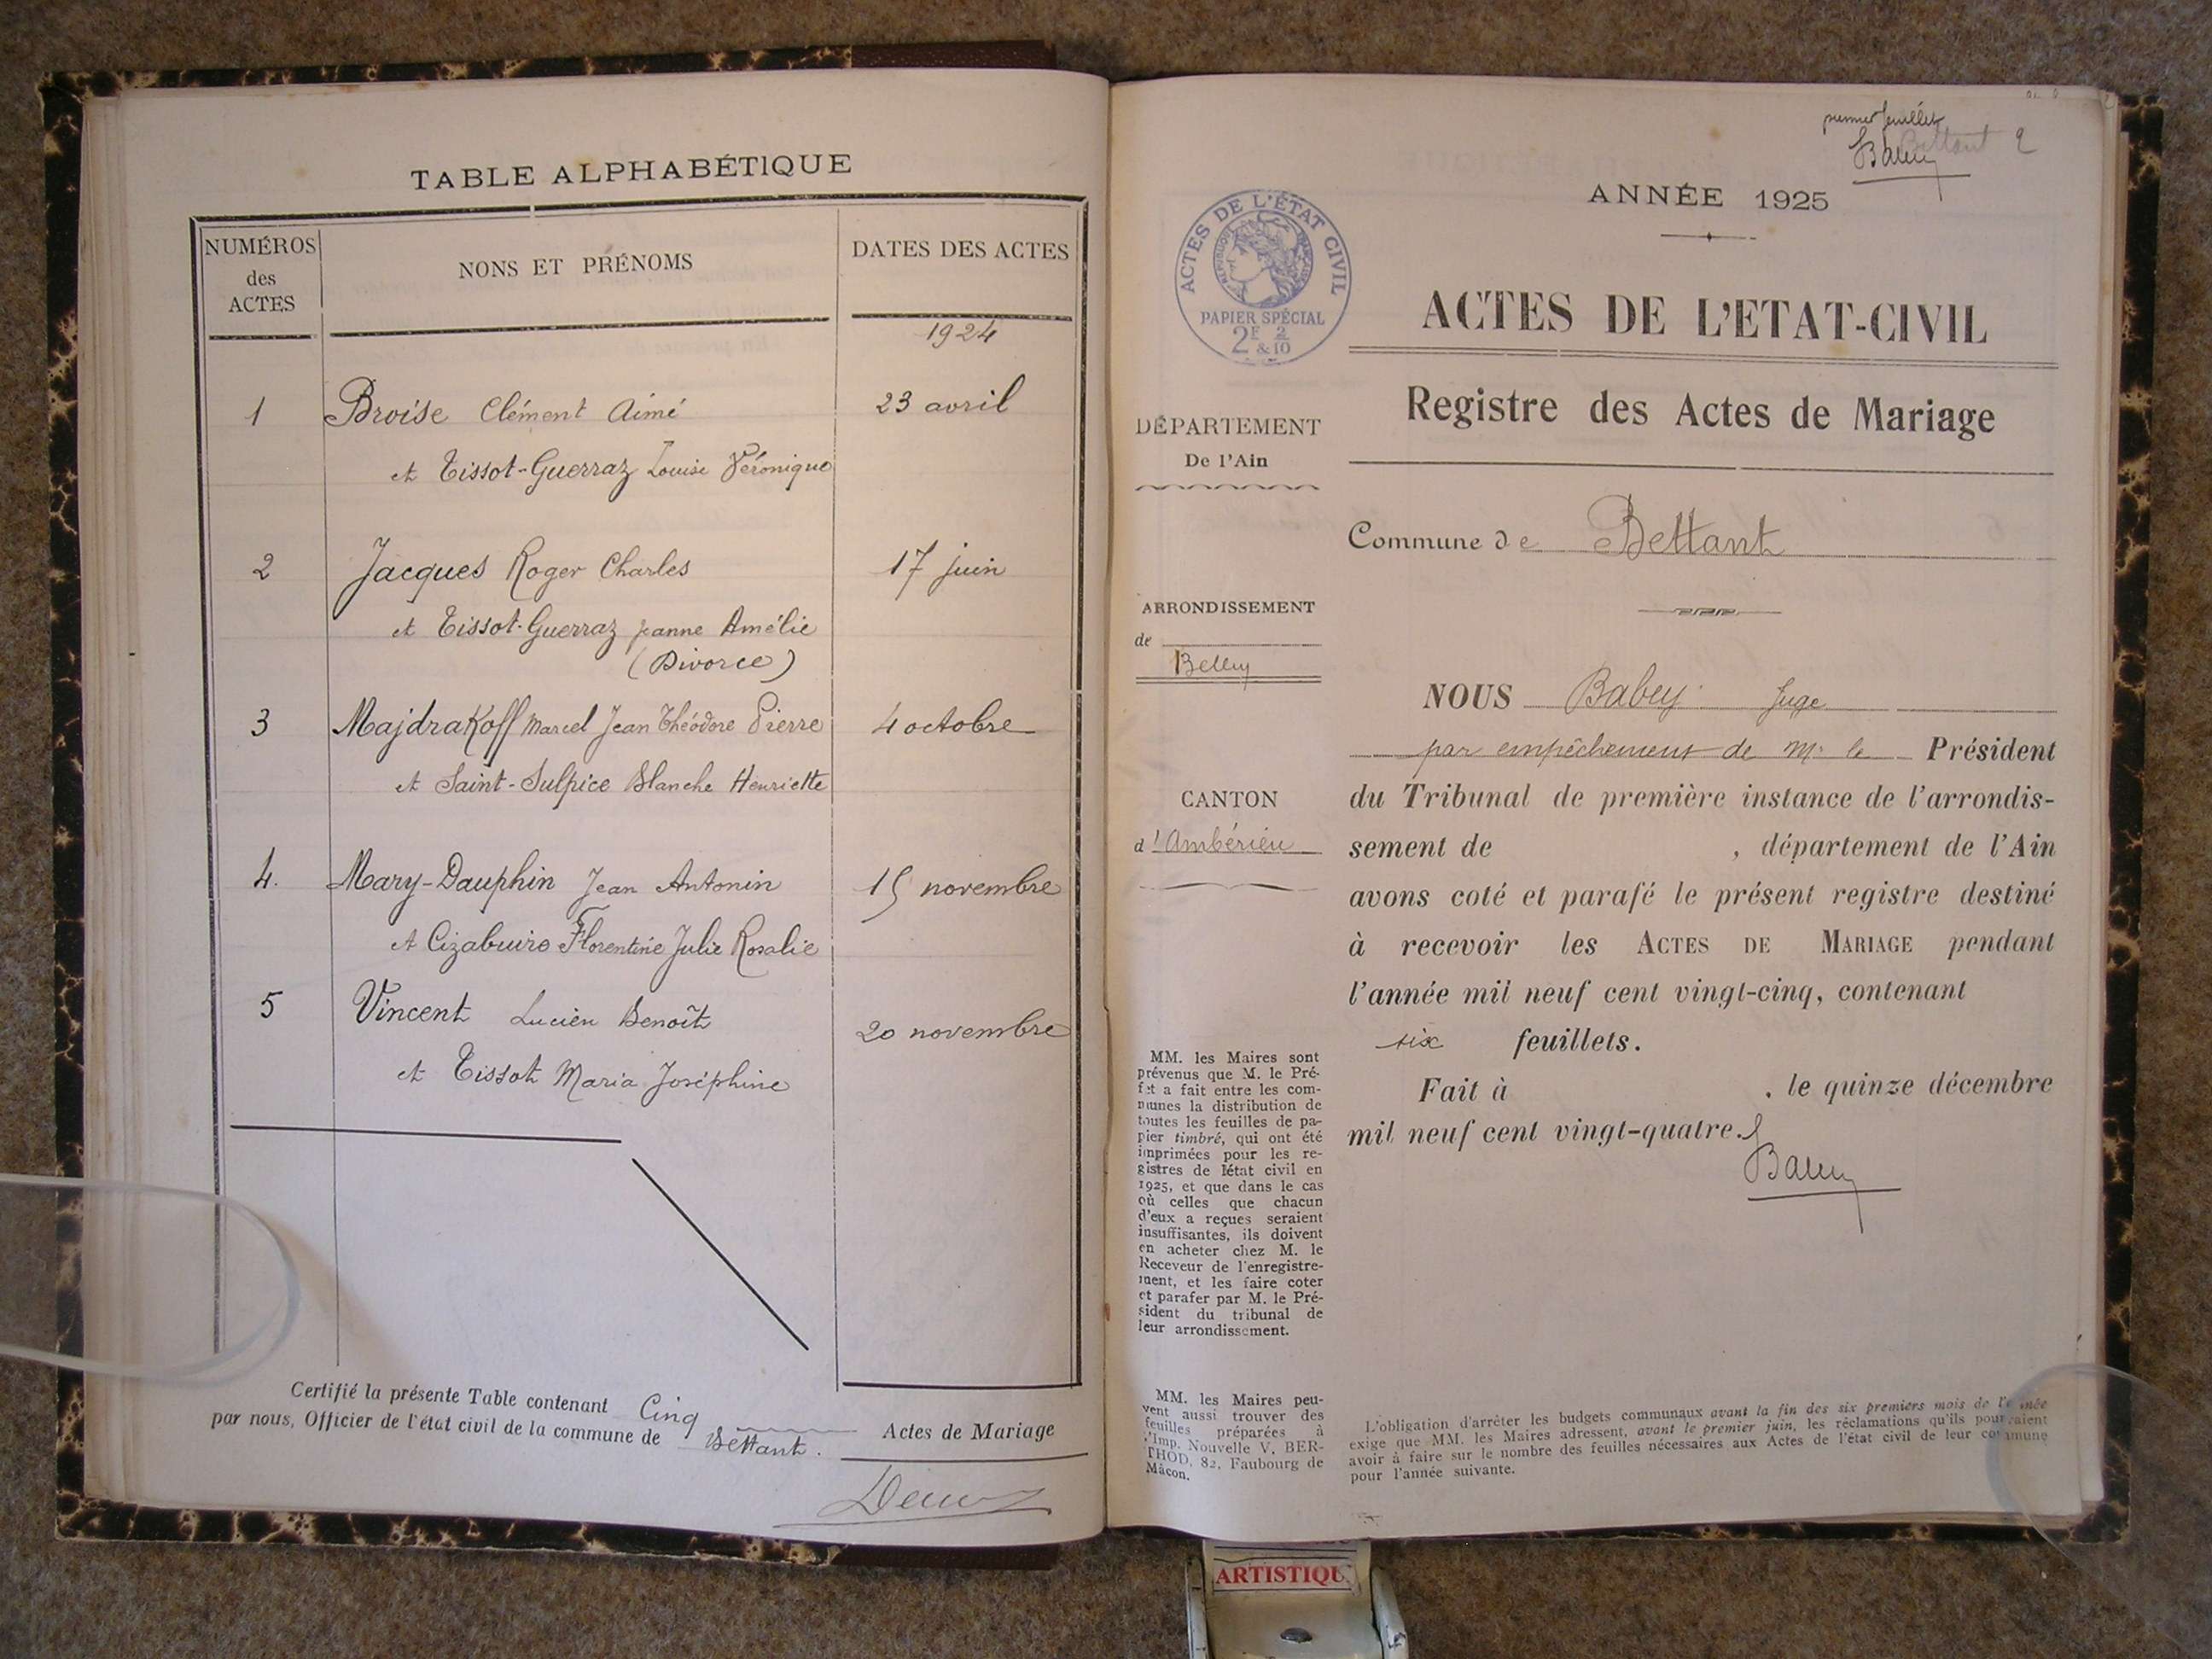 TABLE ALPHABÉTIQUE
NUMÉROS
des
ACTES
NONS ET PRÉNOMS
DATES DES ACTES
1924
1 Broise Clément Aimé 23 avril
et Tissot-Guerraz Louise Véronique
2 Jacques Roger Charles 17 juin
et Tissot-Guerraz Jeanne Amélie
(Divorce)
3 Majdrakoff Marcel Jean Théodore Pierre 4 octobre
et Saint-Sulpice Blanche Henriette
4. Mary-Dauphin Jean Antonin 15 novembre
et Florentine Julie Rosalie
5 Vincent Lucien Benoît 20 novembre
et Tissot Maria Joséphine
Certifié la présente Table contenant Cinq
par nous, Officier de l'état civil de la commune de Bettant.
Actes de Mariage
premier feuillet
Babey
Bettant 2
ANNÉE 1925
ACTES DE L'ÉTAT CIVIL
RÉPUBLIQUE FRANÇAISE
PAPIER SPÉCIAL
2F 2
& 10
ACTES DE L'ETAT-CIVIL
Registre des Actes de Mariage
DÉPARTEMENT
De l'Ain
Commune de Bettant
ARRONDISSEMENT
de
Belley
CANTON
d'Ambérieu
NOUS Babey Juge
par empêchement de Mr le Président
du Tribunal de première instance de l'arrondis-
sement de , département de l'Ain
avons coté et parafé le présent registre destiné
à recevoir les ACTES DE MARIAGE pendant
l'année mil neuf cent vingt-cinq, contenant
six feuillets.
Fait à , le quinze décembre
mil neuf cent vingt-quatre.
Babey
MM. les Maires sont
prévenus que M. le Pré-
fet a fait entre les com-
munes la distribution de
toutes les feuilles de pa-
pier timbré, qui ont été
imprimées pour les re-
gistres de l'état civil en
1925, et que dans le cas
où celles que chacun
d'eux a reçues seraient
insuffisantes, ils doivent
en acheter chez M. le
Receveur de l'enregistre-
ment, et les faire coter
et parafer par M. le Pré-
sident du tribunal de
leur arrondissement.
MM. les Maires peu-
vent aussi trouver des
feuilles préparées à
l'Imp. Nouvelle V. BER-
THOD, 82, Faubourg de
Mâcon.
L'obligation d'arrêter les budgets communaux avant la fin des six premiers mois de l'année
exige que MM. les Maires adressent, avant le premier juin, les réclamations qu'ils pourraient
avoir à faire sur le nombre des feuilles nécessaires aux Actes de l'état civil de leur commune
pour l'année suivante.
ARTISTIQU